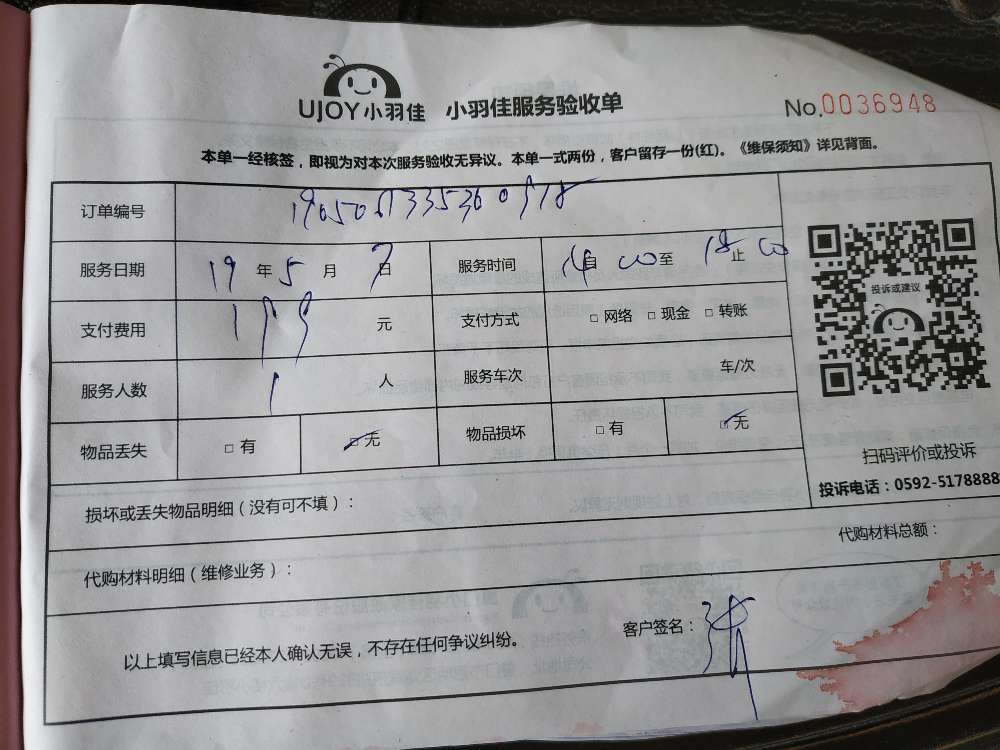 UJOY小羽佳 小羽佳服务验收单 No.0036948
本单一经核签，即视为对本次服务验收无异议。本单一式两份，客户留存一份(红)。《维保须知》详见背面。
订单编号
服务日期 19 年 5 月 7 日 服务时间 14 自 00 至 18 止 00
投诉或建议
支付费用 199 元 支付方式 □ 网络 □ 现金 □ 转账
服务人数 1 人 服务车次 车/次
物品丢失 □ 有 □ 无 物品损坏 □ 有 □ 无
扫码评价或投诉
投诉电话：0592-5178888
损坏或丢失物品明细（没有可不填）：
代购材料明细（维修业务）： 代购材料总额：
以上填写信息已经本人确认无误，不存在任何争议纠纷。 客户签名：